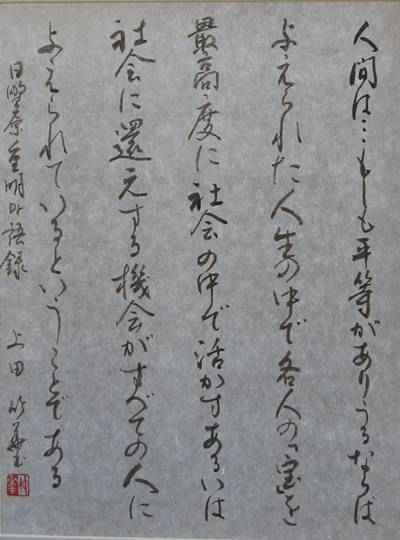 人間は…もしも平等がありうるならば
与えられた人生の中で各人の宝を
最高度に社会の中で活かすあるいは
社会に還元する機会がすべての人に
与えられているということである
日野原重明の語録
上田